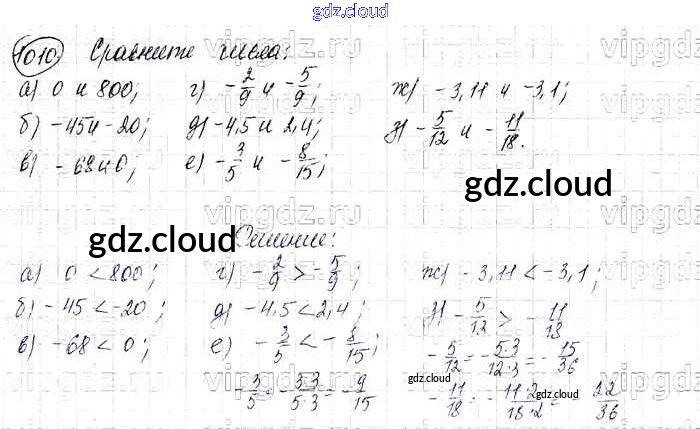 gdz.cloud
1010. Сравните числа:
а) 0 и 800; г) -2/9 и -5/9; ж) -3,11 и -3,1;
б) -45 и -20; д) -4,5 и 2,4; з) -5/12 и -11/18.
в) -68 и 0; е) -3/5 и -8/15;
gdz.cloud
gdz.cloud
Решение:
а) 0 < 800; г) -2/9 > -5/9; ж) -3,11 < -3,1;
б) -45 < -20; д) -4,5 < 2,4; з) -5/12 > -11/18
в) -68 < 0; е) -3/5 < -8/15;
-5/12 = -5·3/12·3 = -15/36
gdz.cloud
-3/5 = -3·3/5·3 = -9/15
-11/18 = -11·2/18·2 = -22/36
gdz.cloud